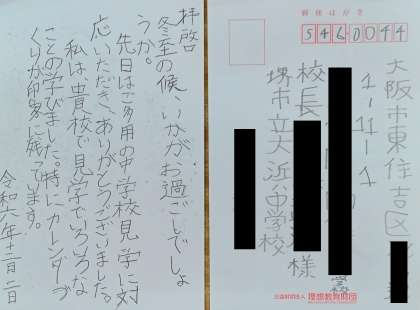 拝啓
冬至の候、いかがお過ごしでしょ
うか。
先日はご多用の中学校見学に対
応いただき、ありがとうございました。
私は、貴校で見学でいろいろな
ことの学びました。特にカレンダーづ
くりが印象に残っています。
令和六年十二月二日
郵便はがき
5460044
大阪市東住吉区
1-11-1
校長
様
堺市立大浜中学校
公益財団法人 理想教育財団